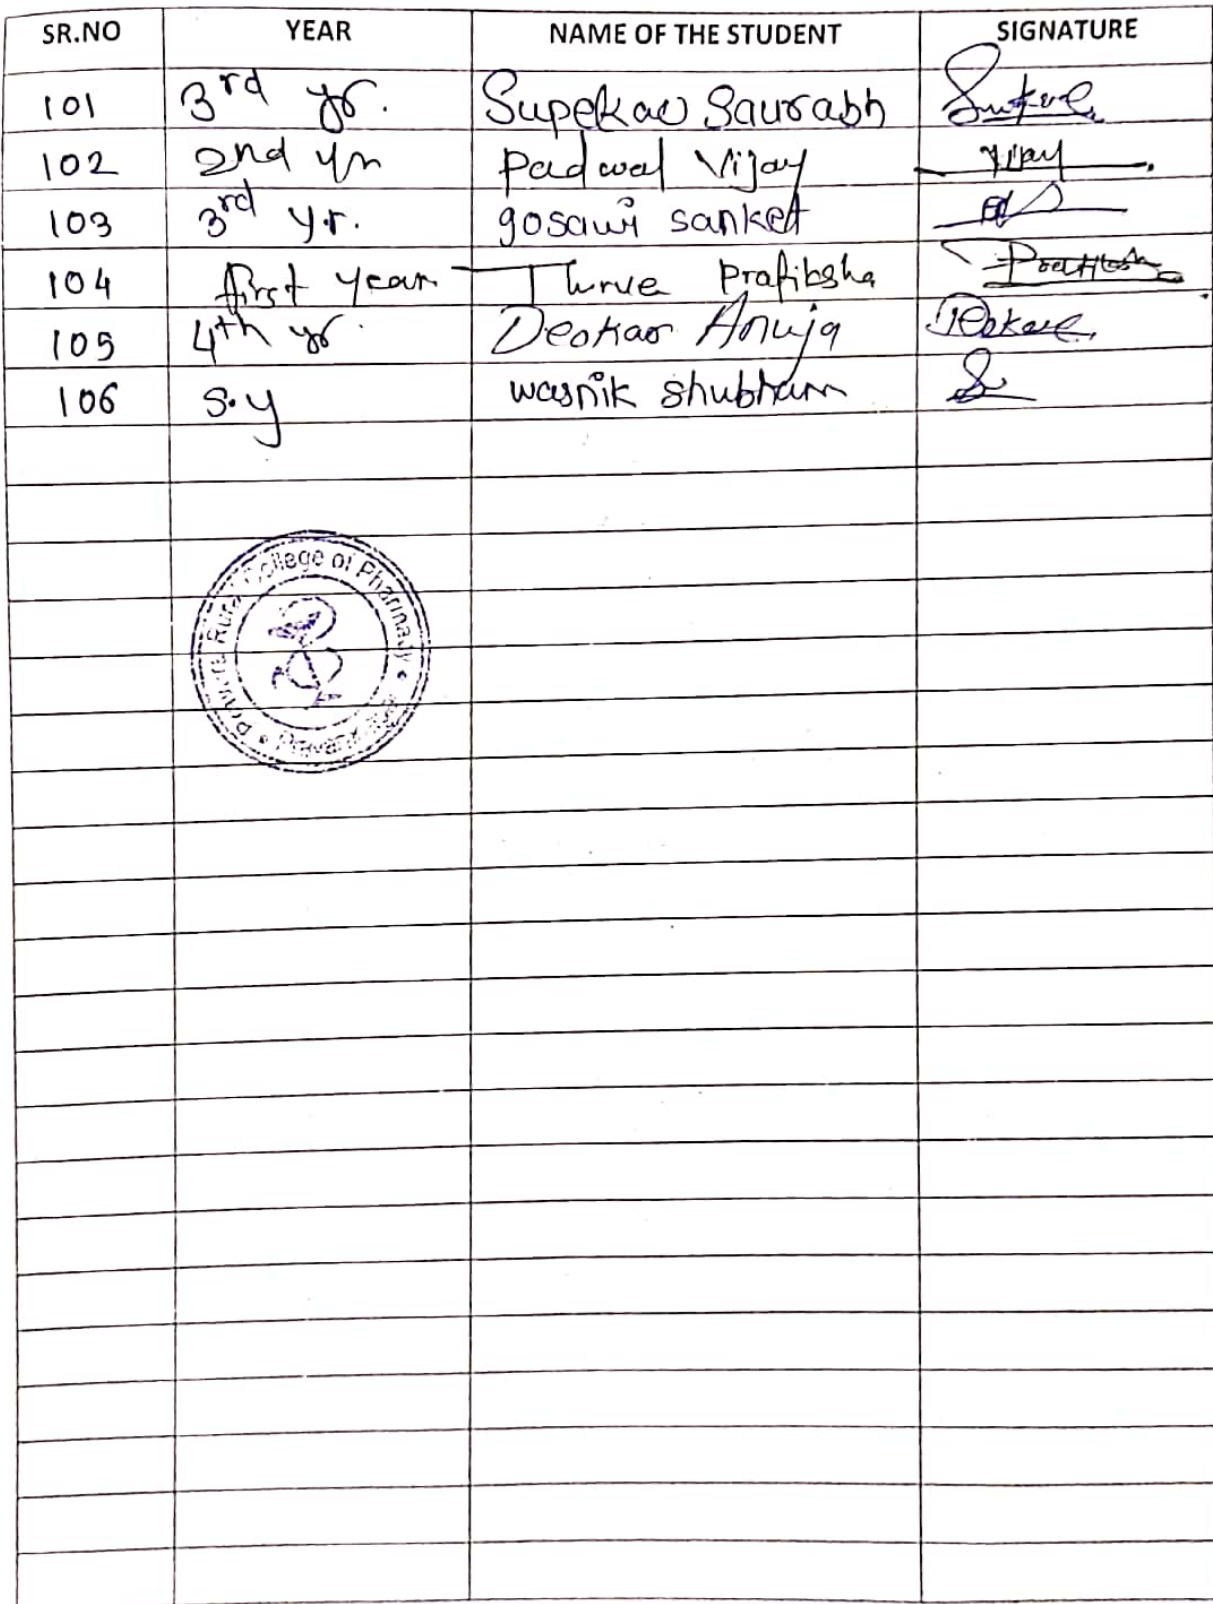 SR.NO YEAR NAME OF THE STUDENT SIGNATURE
101 3rd yr. Supekar Saurabh
102 2nd yr Padwal Vijay Vijay
103 3rd y.r. gosawi sanket
104 first year Prafiksha
105 4th yr. Deokar Anuja Deokar
106 s.y wasnik shubham
College of Pharmacy